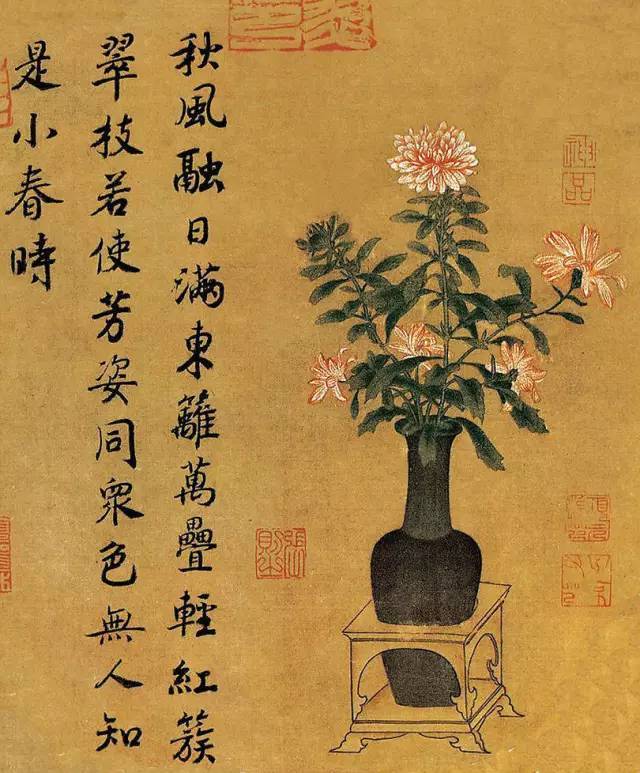 秋風融日滿東籬萬疊輕紅簇
翠枝若使芳姿同衆色無人知
是小春時
神品